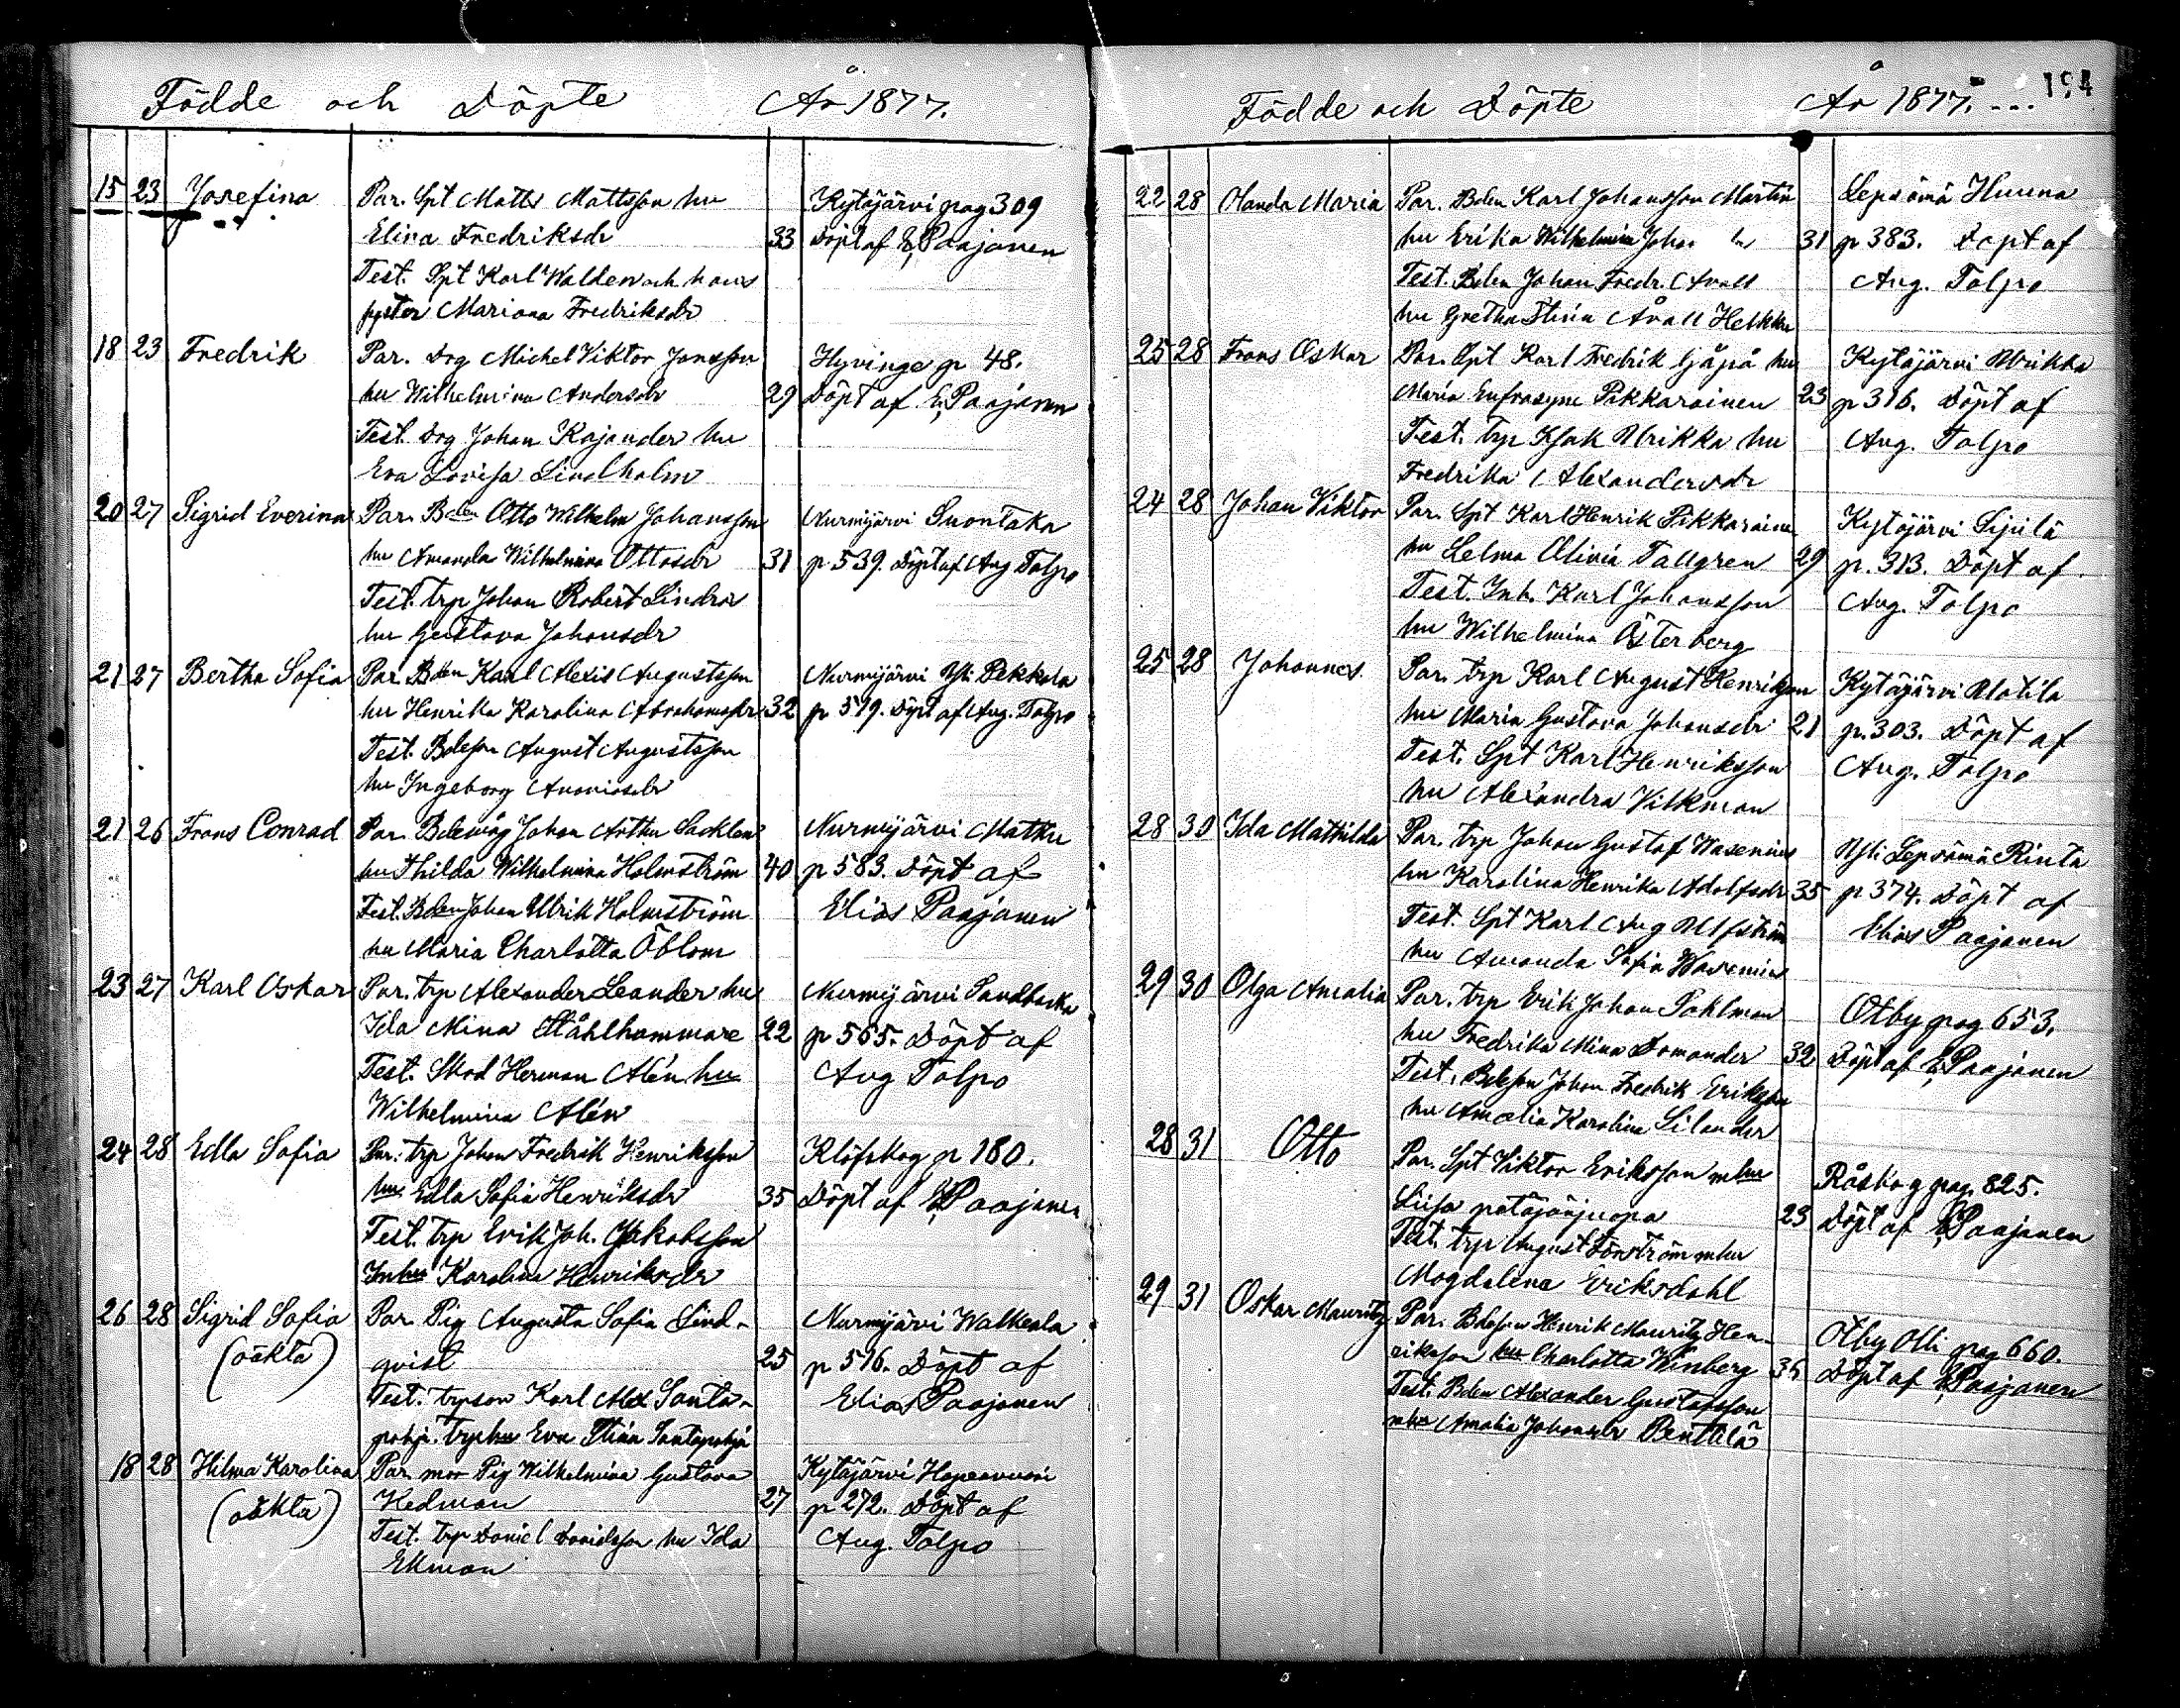 Födde och Döpte År 1877.
15 23 Josefina Par. Spt Matts Mattsson hu Kytäjärvi pag 309
Elina Fredriksdr 33 Döpt af E. Paajanen
Test. Spt Karl Walden och hans
syster Mariana Fredriksdr
18 23 Fredrik Par. Drg Michel Viktor Jansson Hyvinge p 48.
hu Wilhelmina Andersdr 29 Döpt af E. Paajanen
Test. Drg Johan Kajander hu
Eva Lovisa Lindholm
20 27 Sigrid Everina Par. Bden Otto Wilhelm Johansson Nurmijärvi Suontaka
hu Amanda Wilhelmina Ottosdr 31 p 539. Döpt af Aug Talpo
Test. trp Johan Robert Lindros
hu Gustava Johansdr
21 27 Bertha Sofia Par. Bden Karl Alexis Augustsson Nurmijärvi Yli Pekkala
hu Henrika Karolina Abrahamsdr 32 p 519. Döpt af Aug. Talpo
Test. Bdeson August Augustsson
hu Ingeborg Ananiasdr
21 26 Frans Conrad Par. Bdemåg Johan Arthur Sacklen Nurmijärvi Matku
hu Thilda Wilhelmina Holmström 40 p 583. Döpt af
Test. Bden Johan Ulrik Holmström Elias Paajanen
hu Maria Charlotta Öblom
23 27 Karl Oskar Par. trp Alexander Leander hu Nurmijärvi Sandbacka
Ida Mina Stålhammare 22 p 565. Döpt af
Test. Skod Herman Alén hu Aug Talpo
Wilhelmina Alén
24 28 Edla Sofia Par. trp Johan Fredrik Henriksson Klöfskog p 180.
hu Edla Sofia Henriksdr 35 Döpt af E. Paajanen
Test. trp Erik Joh. Jakobsson
Inhu Karolina Henriksdr
26 28 Sigrid Sofia Par. Pig Augusta Sofia Lind- Nurmijärvi Walkeala
(oäkta) qvist 25 p 516. Döpt af
Test. trpson Karl Alex Santa- Elias Paajanen
pohja. trphu Eva Stina Santapohja
18 28 Hilma Karolina Par. mor Pig Wilhelmina Gustava Kytäjärvi Hopeavuori
(oäkta) Hedman 27 p 272. Döpt af
Test. trp Daniel Davidsson hu Ida Aug. Talpo
Ekman
Födde och Döpte År 1877. 194
22 28 Manda Maria Par. Bden Karl Johansson Martin Lepsämä Huuna
hu Erika Wilhelmina 31 p 383. Döpt af
Test. Bden Johan Fredr. Avall Aug. Talpo
hu Gretha Stina Åvall
25 28 Frans Oskar Par. Spt Karl Fredrik hu Kytäjärvi Ulrikka
Maria Eufrosyne Pikkarainen 23 p 316. Döpt af
Test. trp Isak Ulrikka hu Aug. Talpo
Fredrika Alexandersdr
24 28 Johan Viktor Par. Spt Karl Henrik Pikkarainen Kytäjärvi Sipilä
hu Selma Olivia Tallgren 29 p. 313. Döpt af
Test. Inh. Karl Johansson Aug. Talpo
hu Wilhelmina Österberg
25 28 Johannes Par. trp Karl August Henriksson Kytäjärvi
hu Maria Gustava Johansdr 21 p. 303. Döpt af
Test. Spt Karl Henriksson Aug. Talpo
hu Alexandra Vilkman
28 30 Ida Mathilda Par. trp Johan Gustaf Wasenius Yli Lepsämä Rinta
hu Karolina Henrika Adolfsdr 35 p 374. Döpt af
Test. Spt Karl Aug Ulfström Elias Paajanen
hu Amanda Sofia Wasenius
29 30 Olga Amalia Par. trp Erik Johan Pahlman Otby pag 653.
hu Fredrika Mina Domander 32 Döpt af E. Paajanen
Test. Bdeson Johan Fredrik Eriksson
hu Amalia Karolina Silander
28 31 Otto Par. Spt Viktor Eriksson m hu Råskog pag. 825.
Liisa patajänjuopa 23 Döpt af E. Paajanen
Test. trp August Törnström m hu
Magdalena Eriksdahl
29 31 Oskar Mauritz Par. Bdeson Henrik Mauritz Hen- Otby Olli pag 660.
riksson hu Charlotta Winberg 35 Döpt af E. Paajanen
Test. Bden Alexander Gustafsson
m hu Amalia Johansdr Penttilä